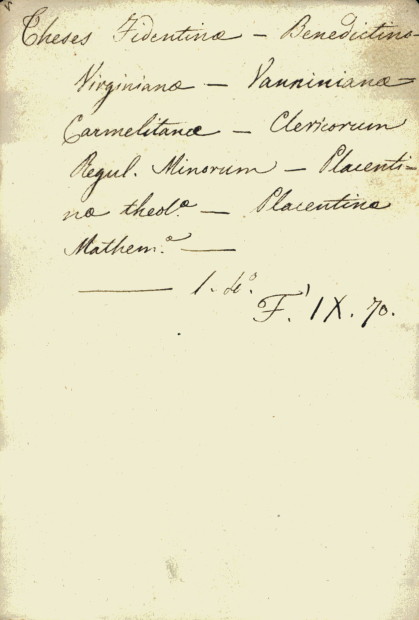 Theses Fidentinæ — Benedictino-
Virginianæ — Vanninianæ =
Carmelitanæ — Clericorum
Regul. Minorum — Placenti-
næ theol.ᵃ — Placentinæ
Mathem.ᵃ —
— 1. 4.º
F.' IX. 70.